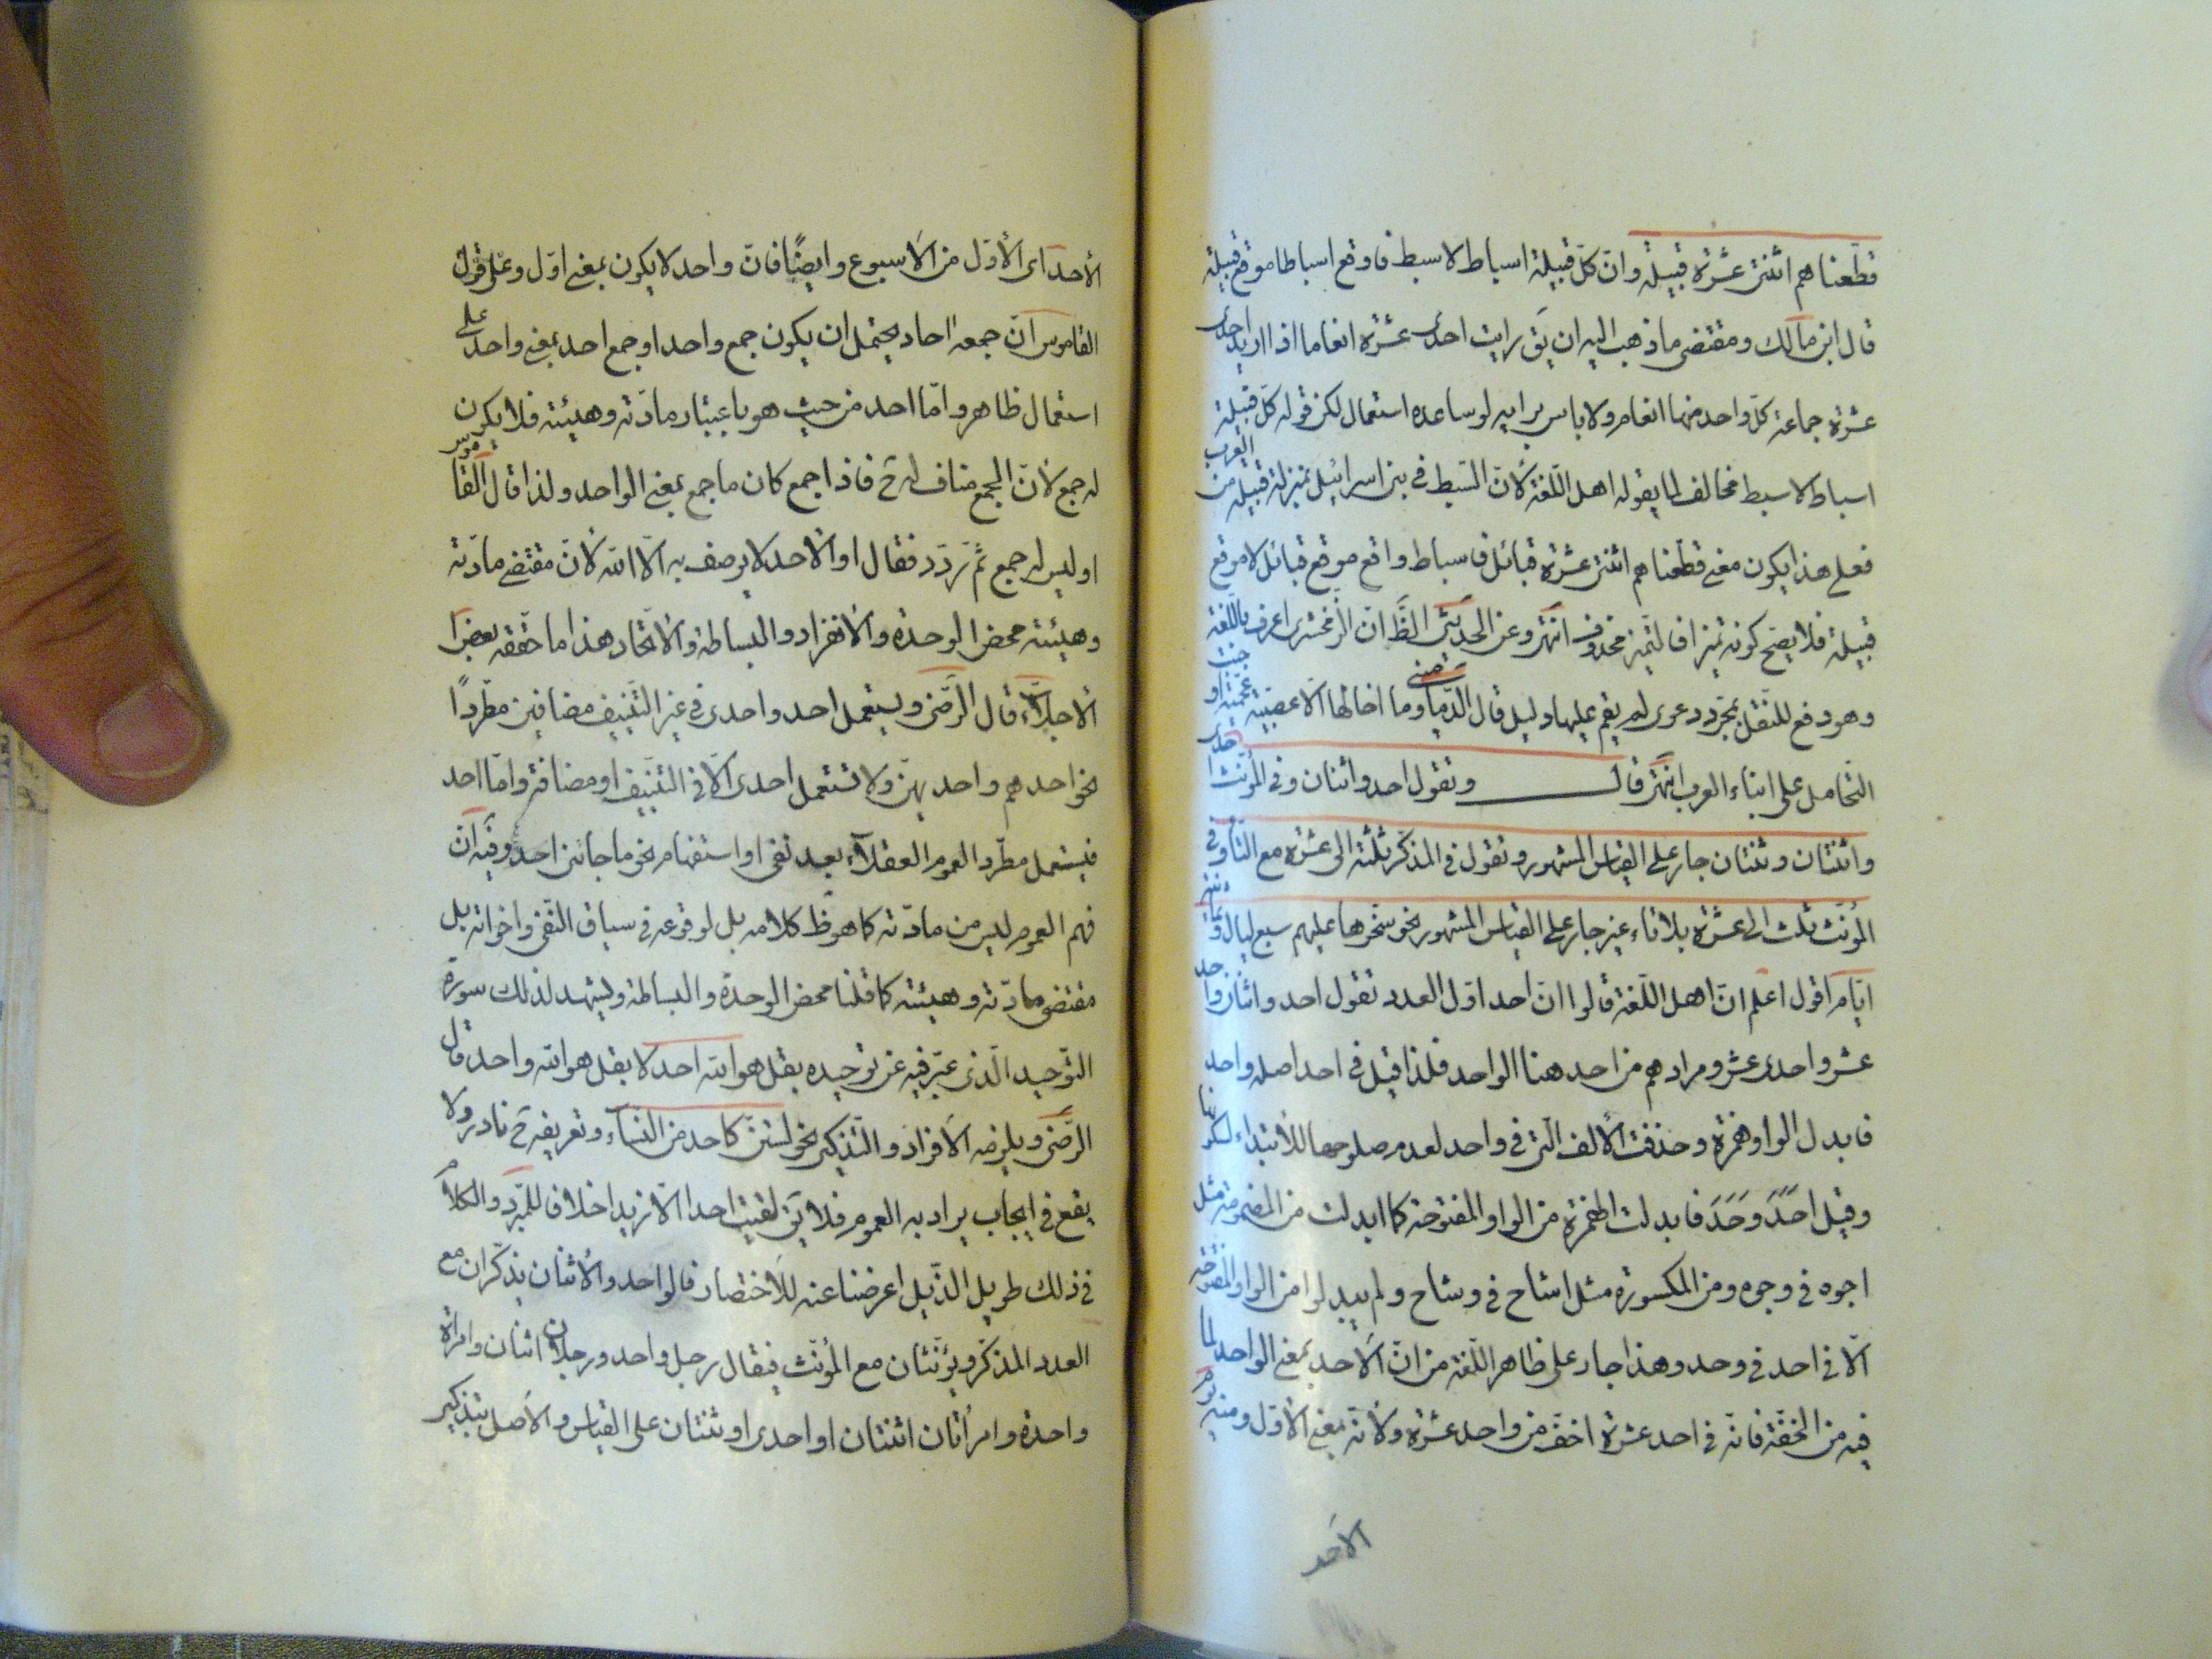 قطّعناهم اثنتى عشرة قبيلة وانّ كلّ قبيلة اسباط لا سبط فاوقع اسباطا موقع قبيلة
قال ابن مالك ومقتضى ما ذهب اليه ان يق رايت احدى عشرة انعاما اذا اريد احدى
عشرة جماعة كلّ واحد منها انعام ولا باس برايه لو ساعده استعمال لكن قوله كلّ قبيلة
اسباط لا سبط مخالف لما يقوله اهل اللّغة لأنّ السّبط فى بنى اسرائيل بمنزلة قبيلة من العرب
فعلى هذا يكون معنى قطّعناهم اثنتى عشرة قبائل فاسباط واقع موقع قبائل لا موقع
قبيلة فلا يصح كونه تميزا فالتّميز محذوف انتهى وعن الحديثى الظّ انّ الزّمخشرى اعرف باللّغة
وهو دفع للنّقل بمجرّد دعوى لم يقم عليها دليل قال الدّمامينى وما اخالها الّا عصبيّة
التّحامل على ابناء العرب انتهى قال وتقول احد واثنان وفى المؤنّث احدى
واثنتان وثنتان جار على القياس المشهور وتقول فى المذكّر ثلثة الى عشرة مع التّاء وفى
المؤنّث ثلث الى عشرة بلا تاء غير جار على القياس المشهور نحو سخّرها عليهم سبع ليال وثمانية
ايّام اقول اعلم انّ اهل اللّغة قالوا انّ احد اوّل العدد تقول احد واثنان واحد
عشر واحدى عشر ومرادهم من احد هنا الواحد فلذا قيل فى احد اصله واحد
فابدل الواو همزة وحذفت الألف الّتى فى واحد لعدم صلوحها للأبتداء لسكونها
وقيل احد وحد فابدلت الهمزة من الواو المفتوحة كما ابدلت من المضمومة مثل
اجوه فى وجوه ومن المكسورة مثل اشاح فى وشاح ولم يبدلوا من الواو المفتوحة
الّا فى احد فى وحد وهذا جار على ظاهر اللّغة من انّ الأحد بمعنى الواحد لما
فيه من الخفّة فانّه فى احد عشرة اخفّ من واحد عشرة ولأنّه بمعنى الأوّل ومنه يوم
الأحد
الأحد اى الأوّل من الأسبوع وايضًا فانّ واحد لا يكون بمعنى اوّل وعلى قول
القاموس انّ جمعه احاد يحتمل ان يكون جمع واحد او جمع احد بمعنى واحد على
استعمال ظاهر وامّا احد من حيث هو باعتبار مادّته وهيئته فلا يكون
له جمع لأنّ الجمع مناف له ح فاذا جمع كان ما جمع بمعنى الواحد ولذا قال القاموس
او ليس له جمع ثمّ تردّد فقال او الأحد لا يوصف به الّا اللّه لأنّ مقتضى مادّته
وهيئته محض الوحدة والأنفراد والبساطة والأتّحاد هذا ما حقّقه بعض
الأجلّاء قال الرّضى ويستعمل احد واحدى فى غير التّنييف مضافين مطّردًا
نحو احدهم واحديهنّ ولا تستعمل احدى الّا فى التّنييف او مضافة وامّا احد
فيستعمل مطّردا لعموم العقلاء بعد نفى او استفهام نحو ما جائنى احد وفيه انّ
فهم العموم ليس من مادّته كما هو ظ كلامه بل لوقوعه فى سياق النّفى واخواته بل
مقتضى مادّته وهيئته كما قلنا محض الوحدة والبساطة ويشهد لذلك سورة
التّوحيد الّذى عبّر فيه عن توحيده بقل هو اللّه احد لا بقل هو اللّه واحد قال
الرّضى ويلزمه الأفراد والتّذكير نحو لستنّ كاحد من النّساء وتعريفه ح نادر ولا
يقع فى ايجاب يراد به العموم فلا يق لقيت احدا الّا زيدا خلافا للمبرّد والكلام
فى ذلك طويل الذّيل اعرضنا عنه للأختصار فالواحد والأثنان يذكّران مع
العدد المذكّر ويؤنّثان مع المؤنّث فيقال رجل واحد ورجلان اثنان وامراة
واحدة وامراتان اثنتان او احدى او ثنتان على القياس والأصل بتذكير